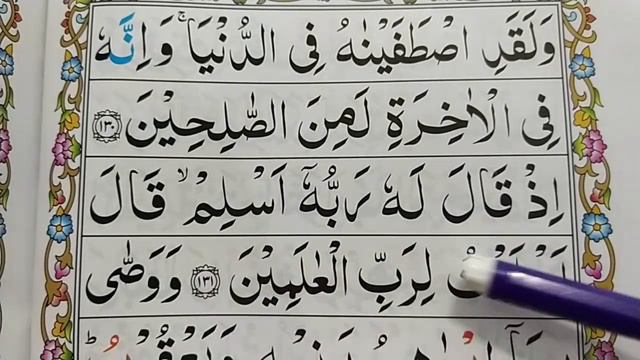 وَلَقَدِ اصْطَفَيْنٰهُ فِى الدُّنْيَا ۚ وَاِنَّهٗ
فِى الْاٰخِرَةِ لَمِنَ الصّٰلِحِيْنَ ﴿۱۳۰﴾
اِذْ قَالَ لَهٗ رَبُّهٗۤ اَسْلِمْ ۙ قَالَ
لِرَبِّ الْعٰلَمِيْنَ ﴿۱۳۱﴾ وَوَصّٰى